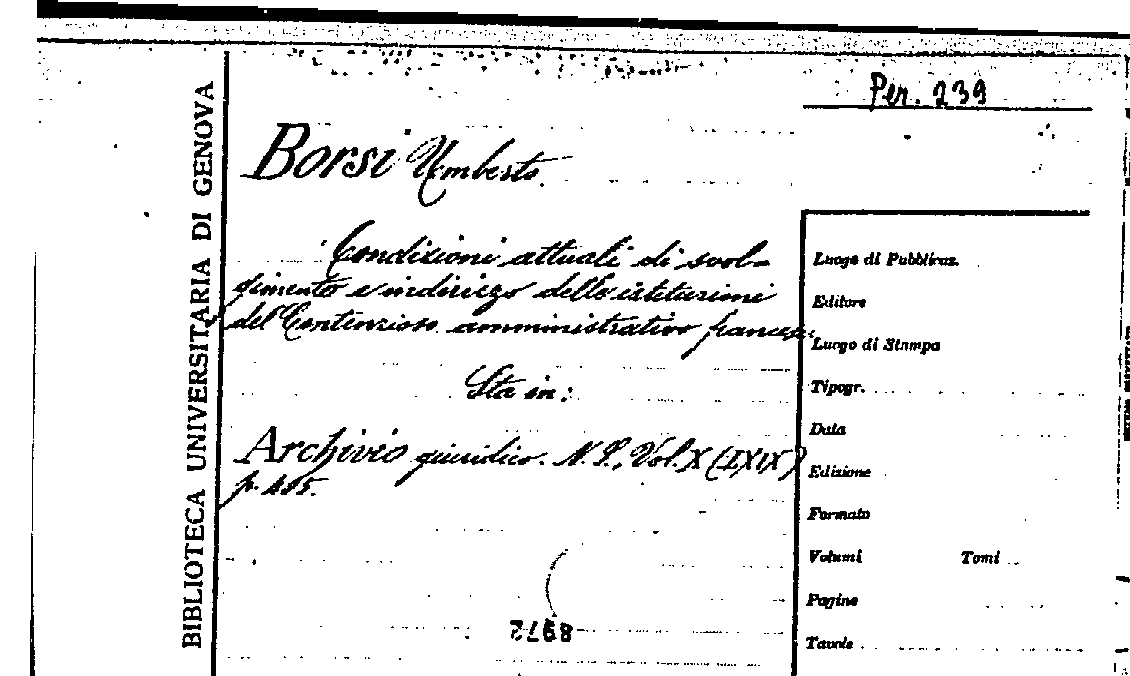 Per. 239
BIBLIOTECA UNIVERSITARIA DI GENOVA
Borsi Umberto.
Condizioni attuali di svol-
gimento e indirizzo delle istituzioni
del Contenzioso amministrativo francese
Sta in:
Archivio giuridico. N. S., Vol. X (LXIX)
p. 405.
8972
Luogo di Pubblicaz.
Editore
Luogo di Stampa
Tipogr.
Data
Edizione
Formato
Volumi Tomi
Pagine
Tavole